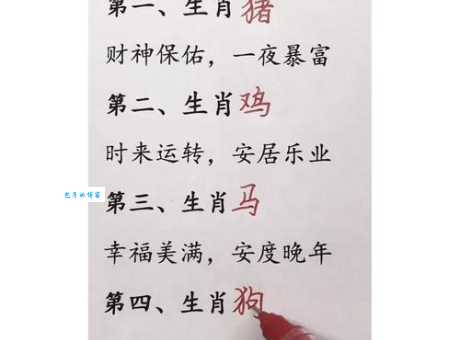 第一、生肖猪
财神保佑，一夜暴富
第二、生肖鸡
时来运转，安居乐业
第三、生肖马
幸福美满，安度晚年
第四、生肖狗